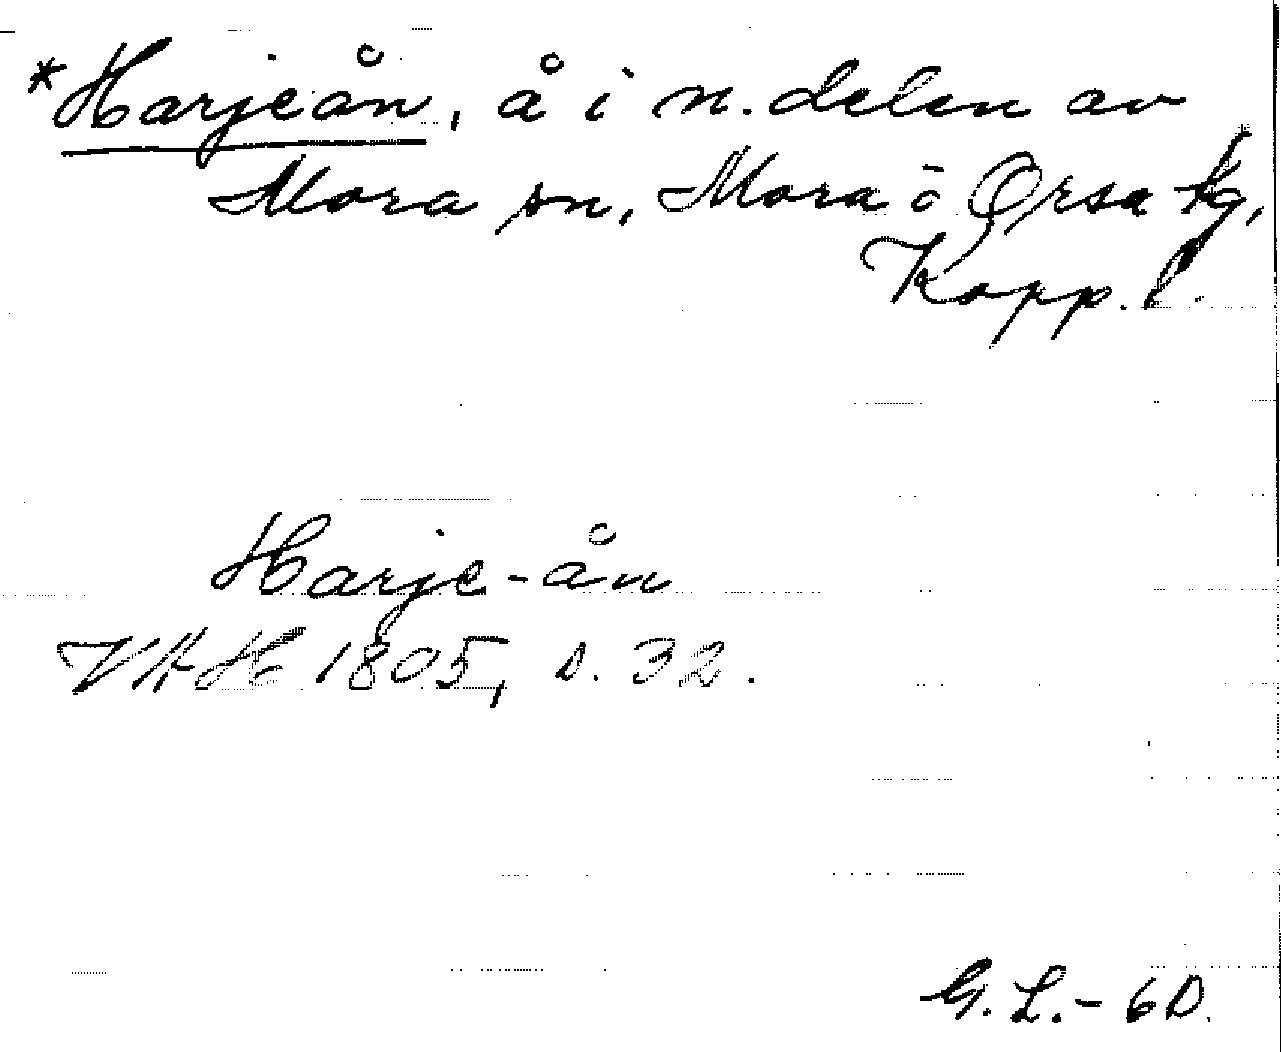 *Harjeån, å i n. delen av
Mora sn, Mora o Orsa tg,
Kopp. l.
Harje-ån
VAH 1805, s. 32.
G. L. - 60.